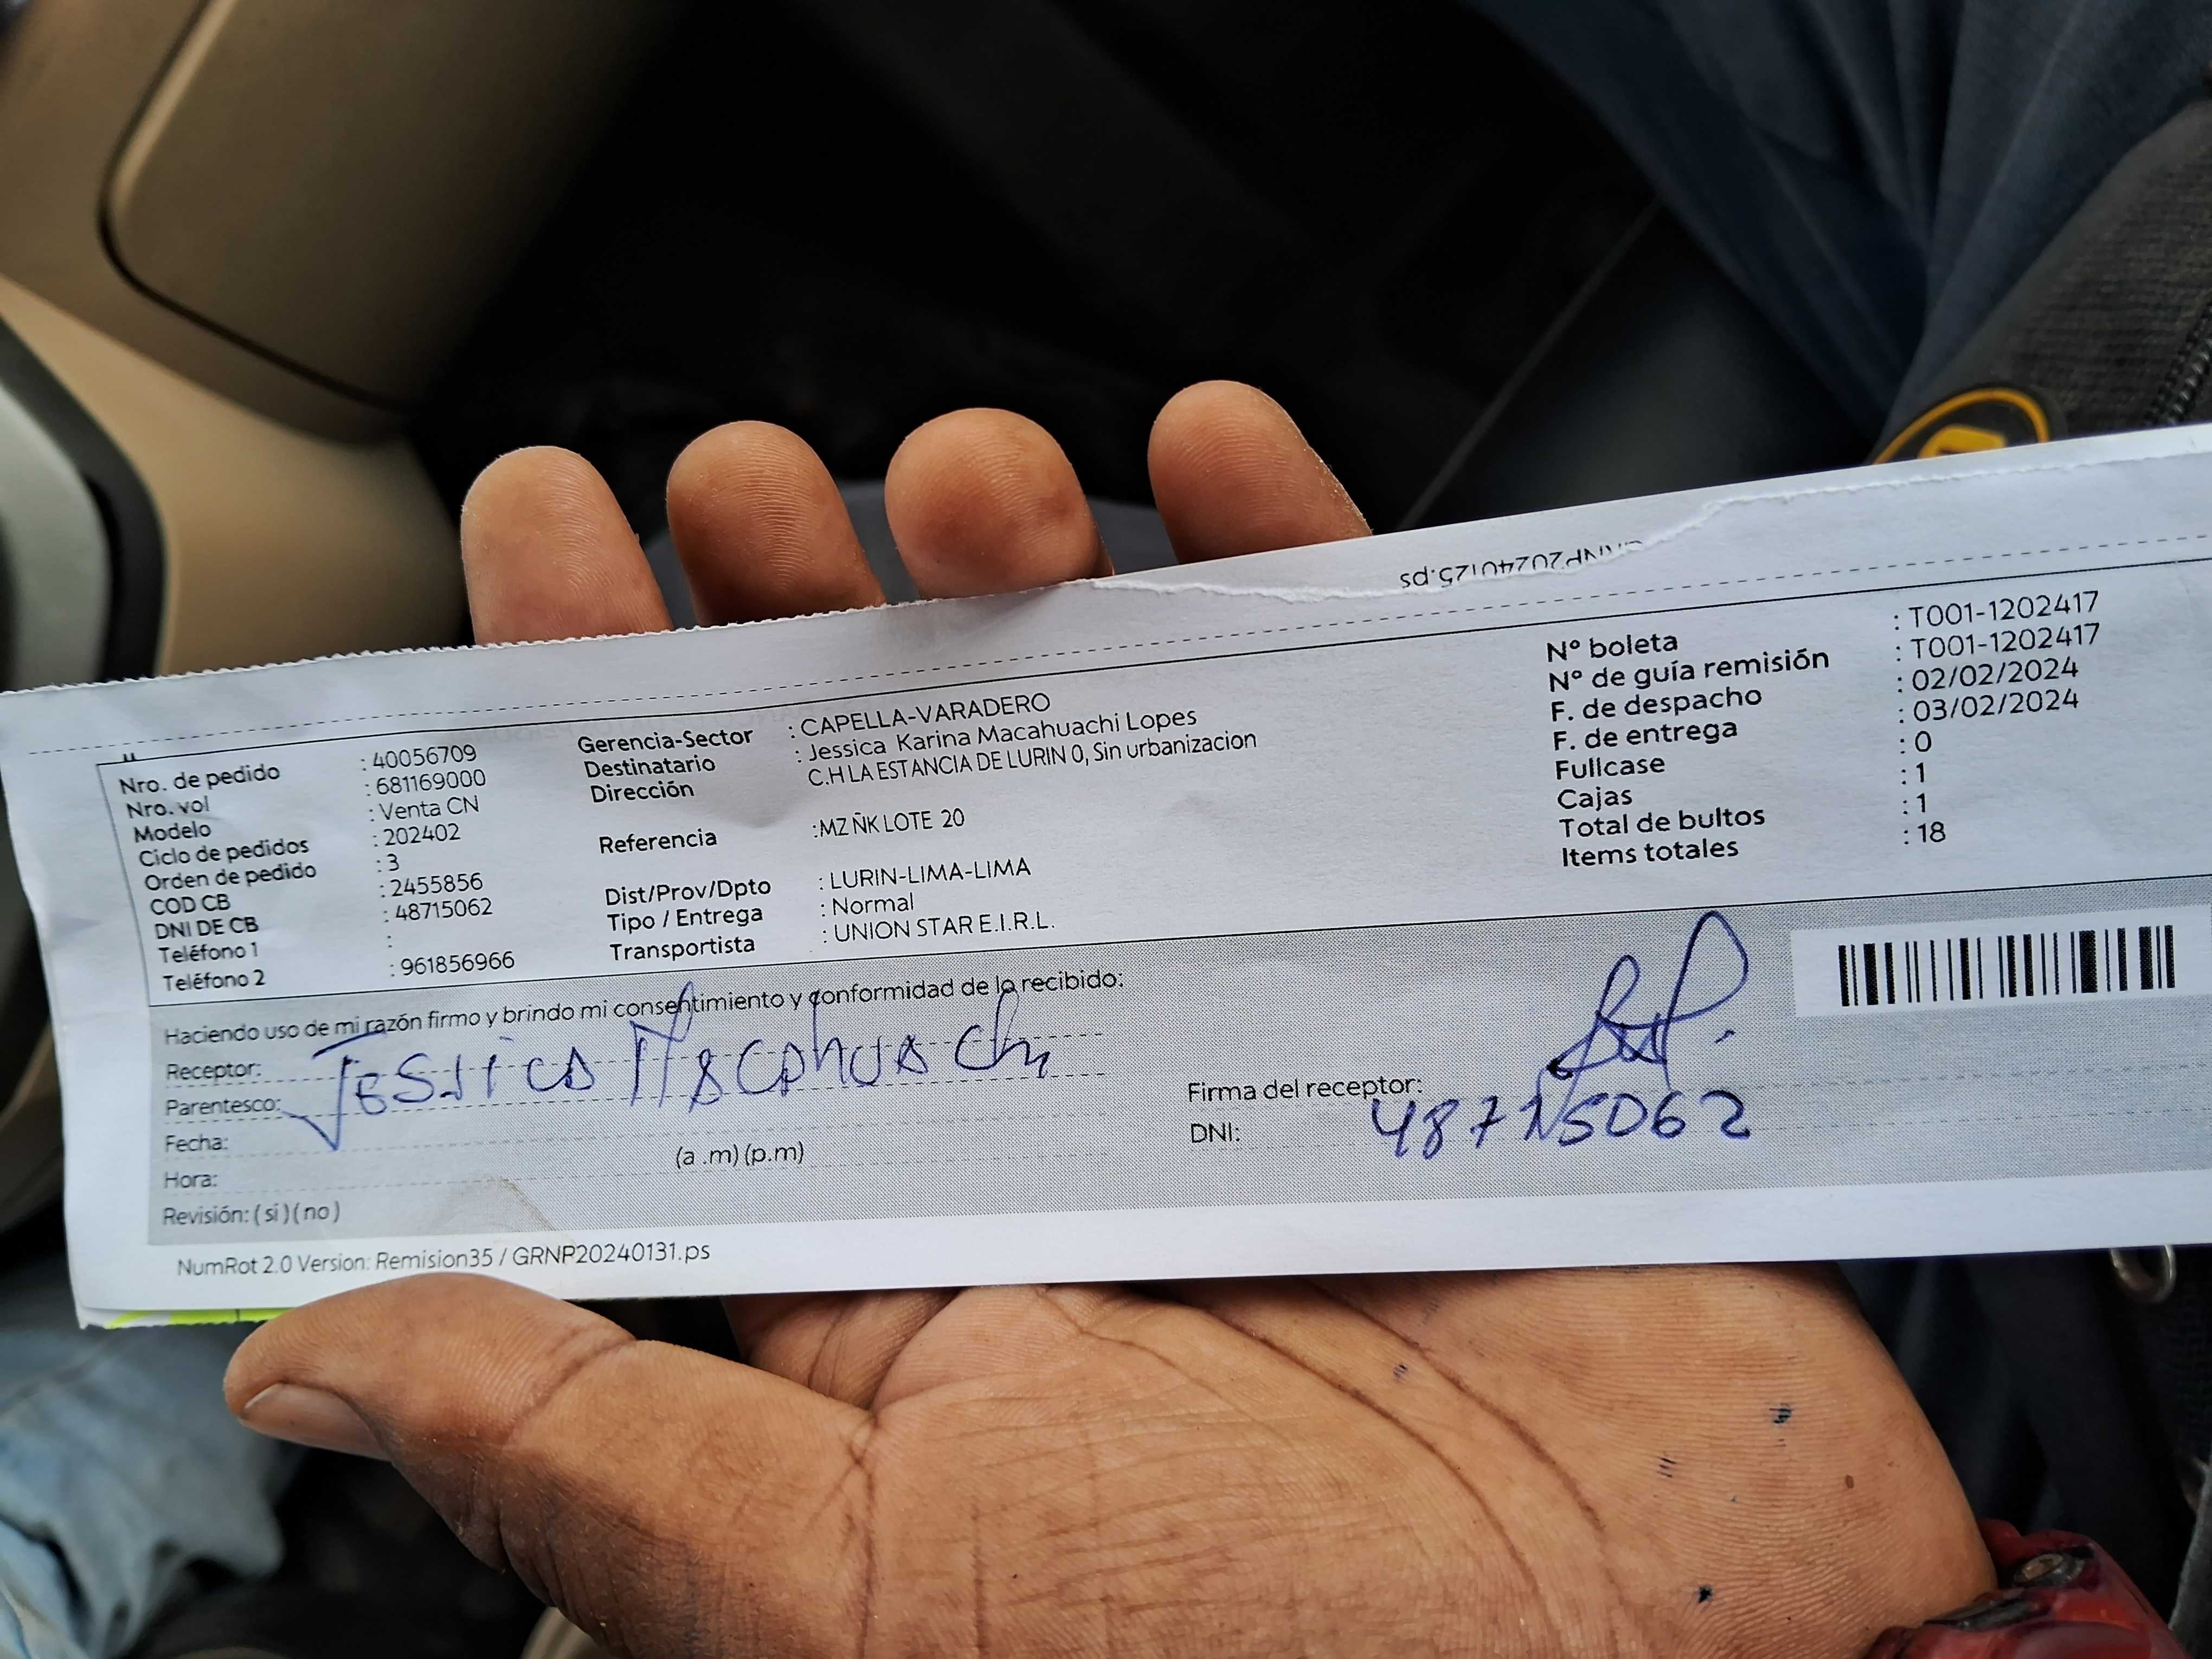 GRNP20240125.ps
Nro. de pedido : 40056709
Nro. vol : 681169000
Modelo : Venta CN
Ciclo de pedidos : 202402
Orden de pedido : 3
COD CB : 2455856
DNI DE CB : 48715062
Teléfono 1 :
Teléfono 2 : 961856966
Gerencia-Sector : CAPELLA-VARADERO
Destinatario : Jessica Karina Macahuachi Lopes
Dirección C.H LA ESTANCIA DE LURIN 0, Sin urbanizacion
Referencia :MZ ÑK LOTE 20
Dist/Prov/Dpto : LURIN-LIMA-LIMA
Tipo / Entrega : Normal
Transportista : UNION STAR E.I.R.L.
Nº boleta : T001-1202417
Nº de guía remisión : T001-1202417
F. de despacho : 02/02/2024
F. de entrega : 03/02/2024
Fullcase : 0
Cajas : 1
Total de bultos : 1
Items totales : 18
Haciendo uso de mi razón firmo y brindo mi consentimiento y conformidad de lo recibido:
Receptor: Jessica Macahuachi
Parentesco:
Fecha:
Hora: (a .m) (p.m)
Revisión: ( sí ) ( no )
Firma del receptor:
DNI: 48715062
NumRot 2.0 Version: Remision35 / GRNP20240131.ps